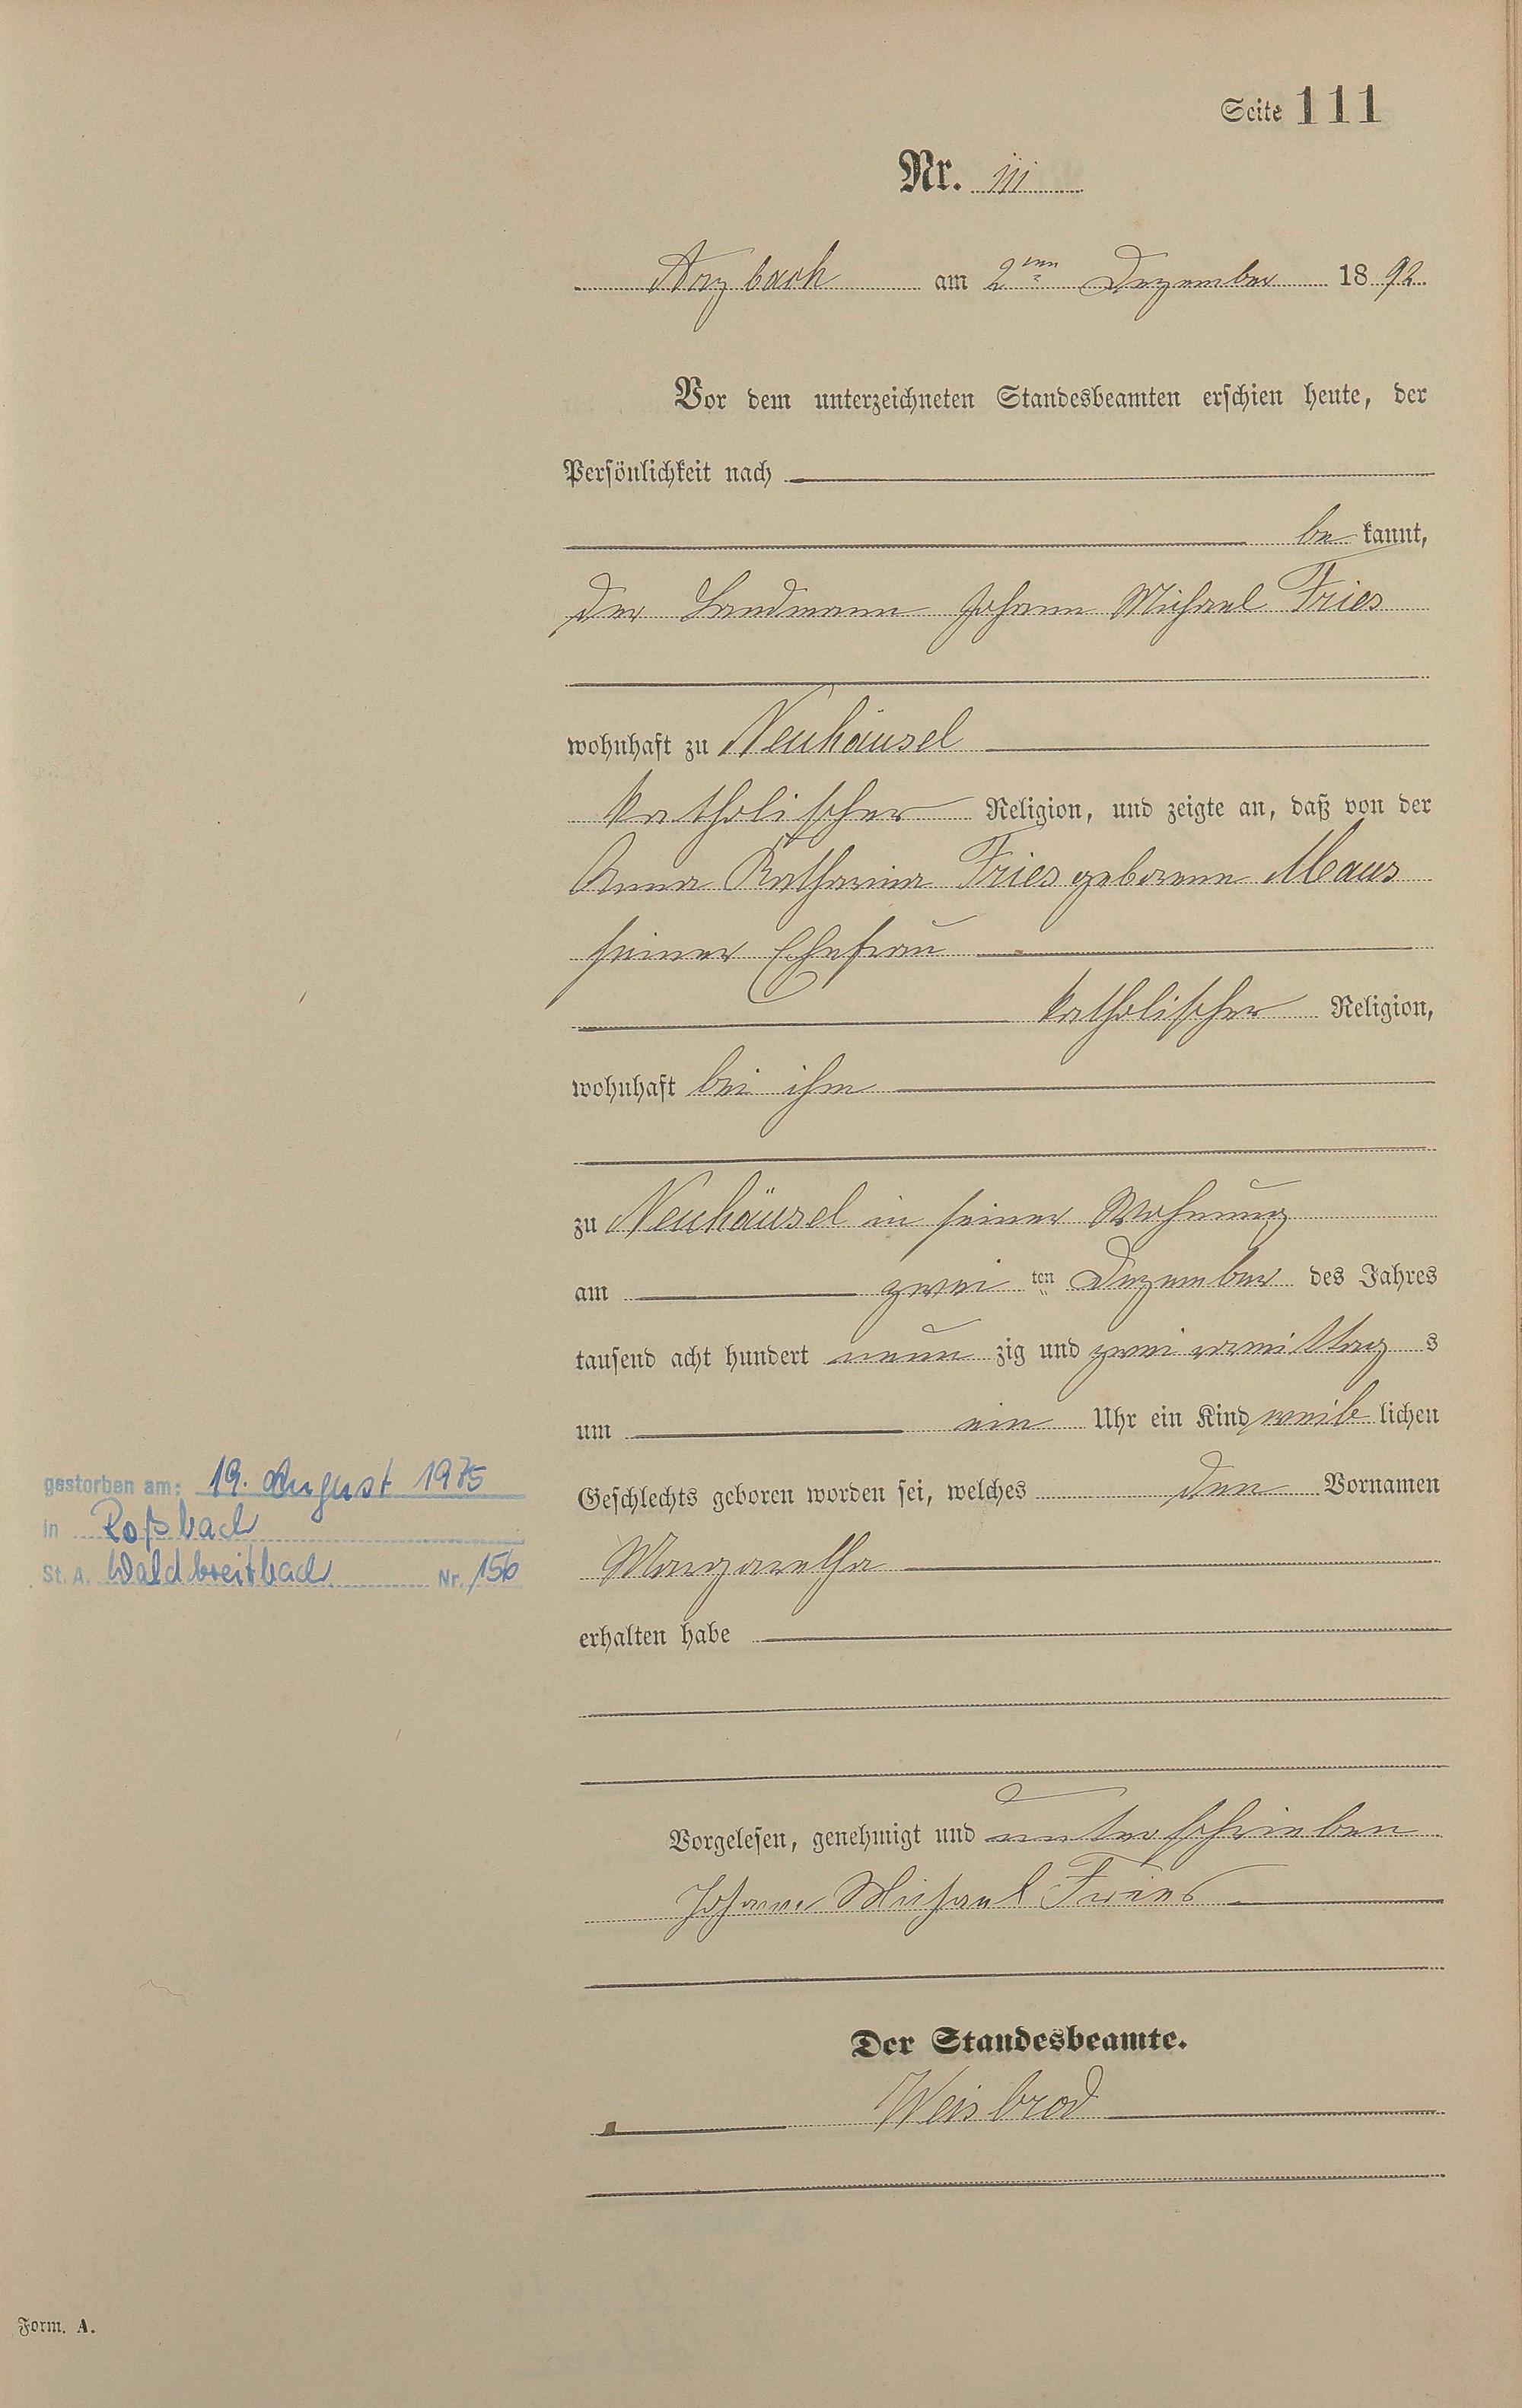 Seite 111
Nr. 111
Arzbach am 2ten Dezember 1892
Vor dem unterzeichneten Standesbeamten erschien heute, der
Persönlichkeit nach
be kannt,
der Landmann Johann Michael Fries
wohnhaft zu Neuhäusel
katholischer Religion, und zeigte an, daß von der
Anna Katharina Fries geborene Maus
seiner Ehefrau
katholischer Religion,
wohnhaft bei ihm
zu Neuhäusel in seiner Wohnung
am zwei ten Dezember des Jahres
tausend acht hundert neun zig und zwei vormittag s
um ein Uhr ein Kind weib lichen
Geschlechts geboren worden sei, welches den Vornamen
Margaretha
erhalten habe
Vorgelesen, genehmigt und unterschrieben
Johann Michael Fries
Der Standesbeamte.
Weisbrod
gestorben am: 19. August 1975
in Roßbach
St. A. Waldbreitbach Nr. 156
Form. A.